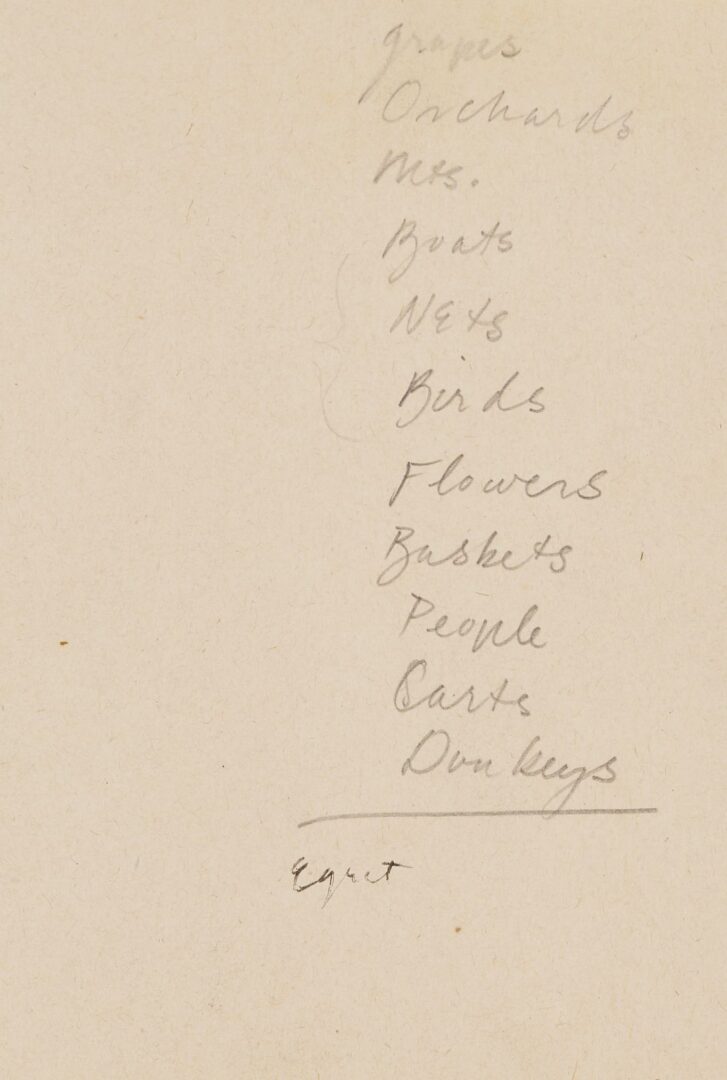 grapes
Orchards
Mts.
Boats
Nets
Birds
Flowers
Baskets
People
Carts
Donkeys
Egret